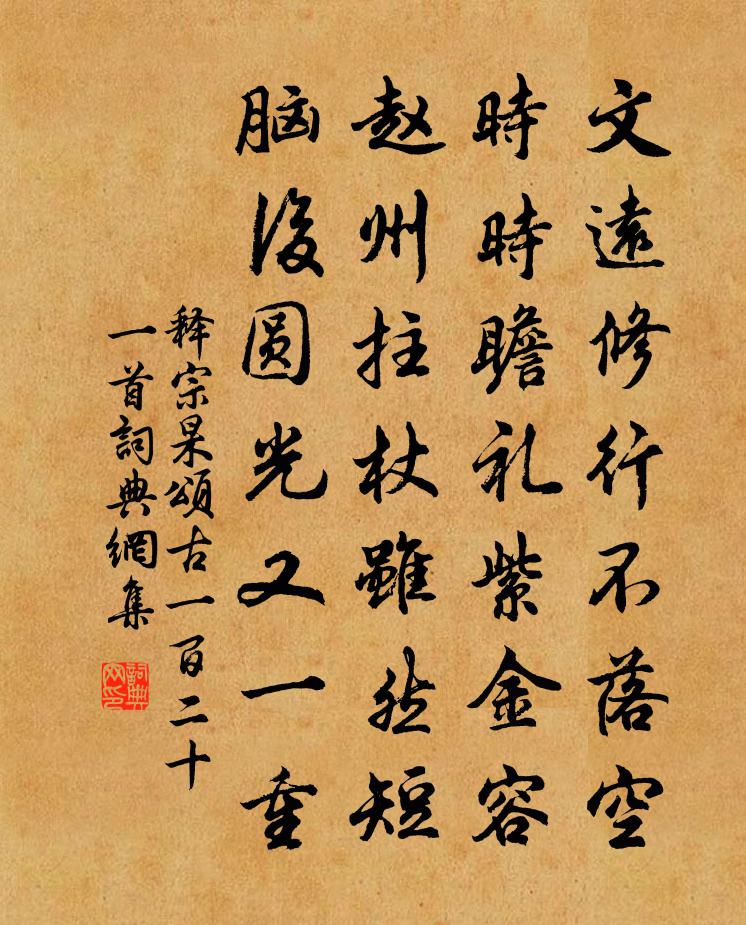 文遠修行不落空
時時瞻礼紫金容
赵州拄杖雖然短
脑後圓光又一重
释宗杲頌古一百二十
一首詞典網集
詞典网印